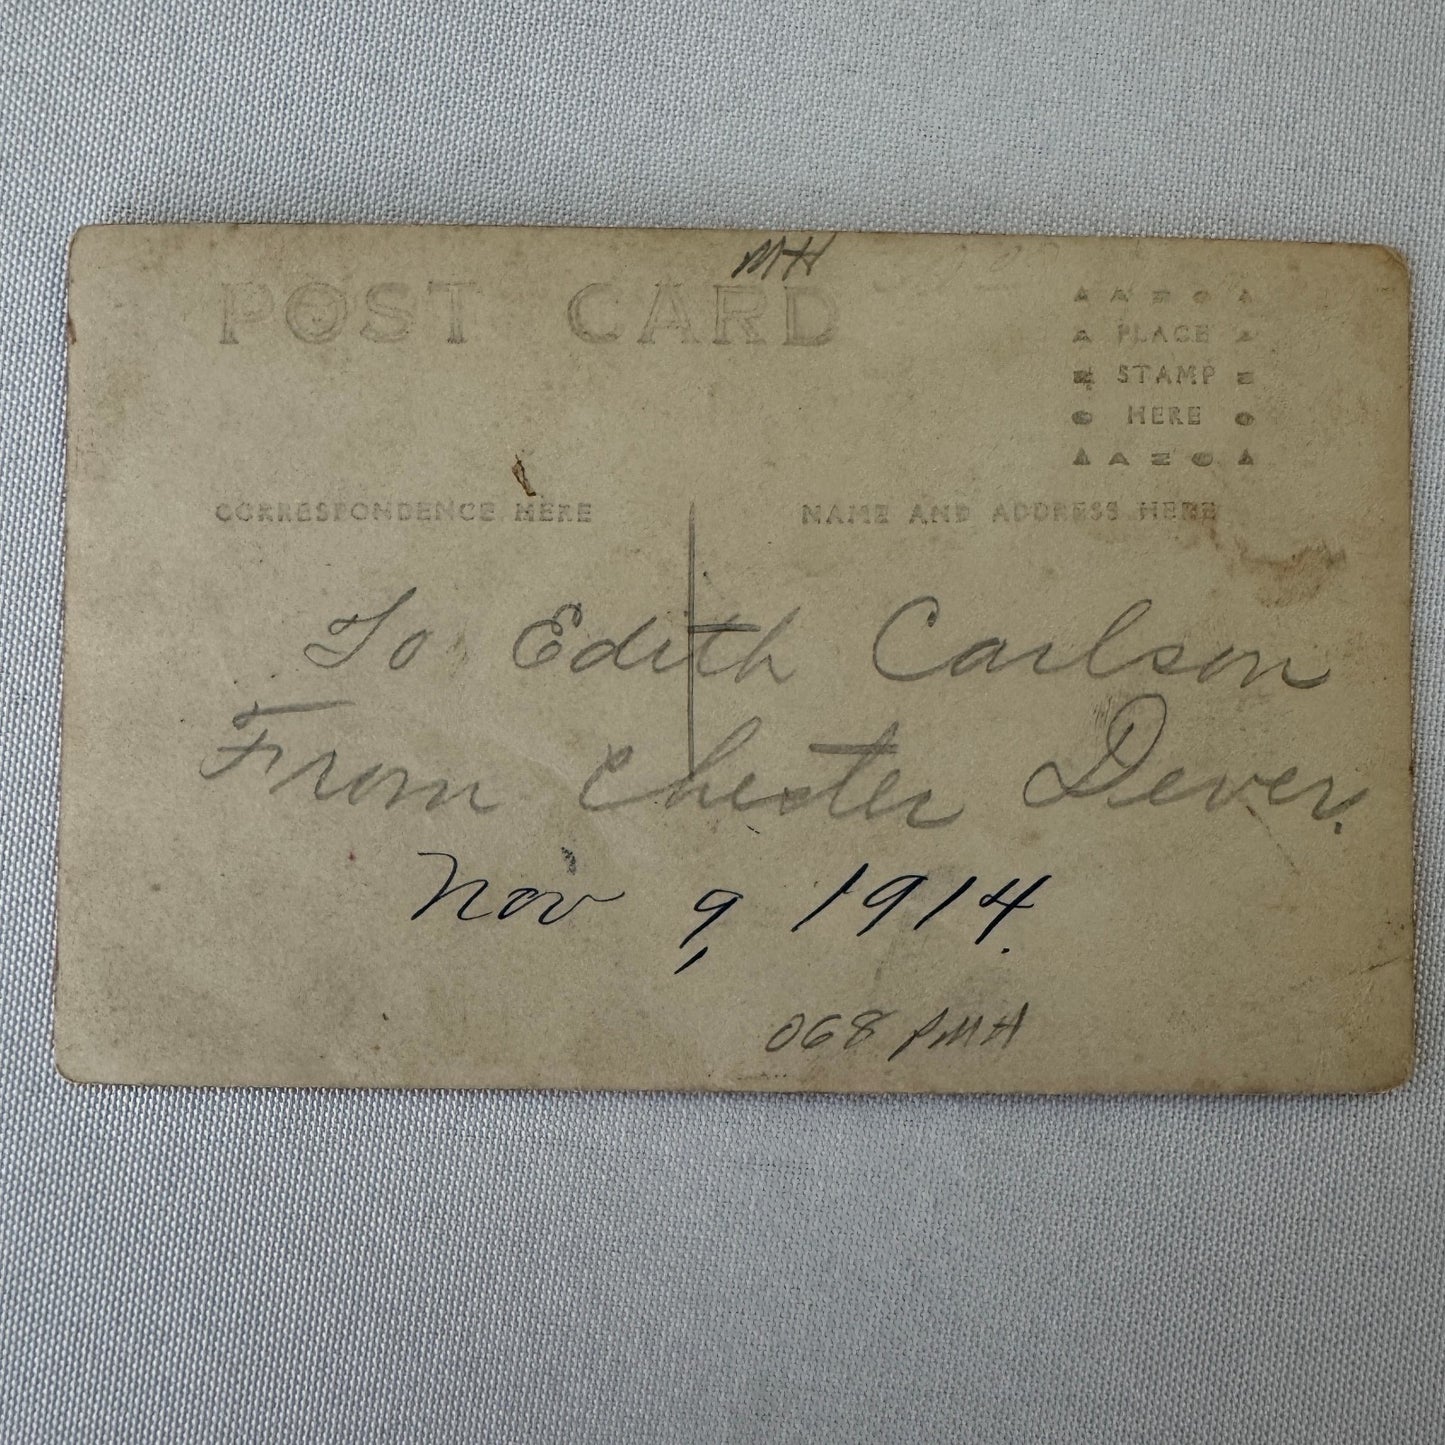 MH
POST CARD
AZO
PLACE
STAMP
HERE
AZO
CORRESPONDENCE HERE
NAME AND ADDRESS HERE
To Edith Carlson
From Chester Dever.
Nov 9, 1914.
068 PMH